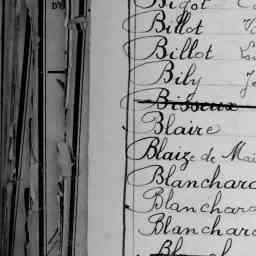 Bigot
Billot
Billot
Bily
Bisseux
Blaire
Blaize de Mai
Blanchard
Blanchard
Blanchard